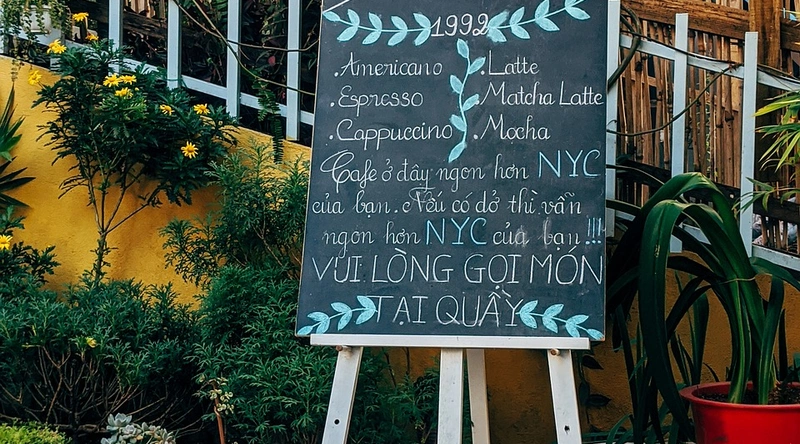 1992
.Americano .Latte
.Espresso Matcha Latte
.Cappuccino .Mocha
Cafe ở đây ngon hơn NYC
của bạn. Nếu có dở thì vẫn
ngon hơn NYC của bạn !!!
VUI LÒNG GỌI MÓN
TẠI QUẦY